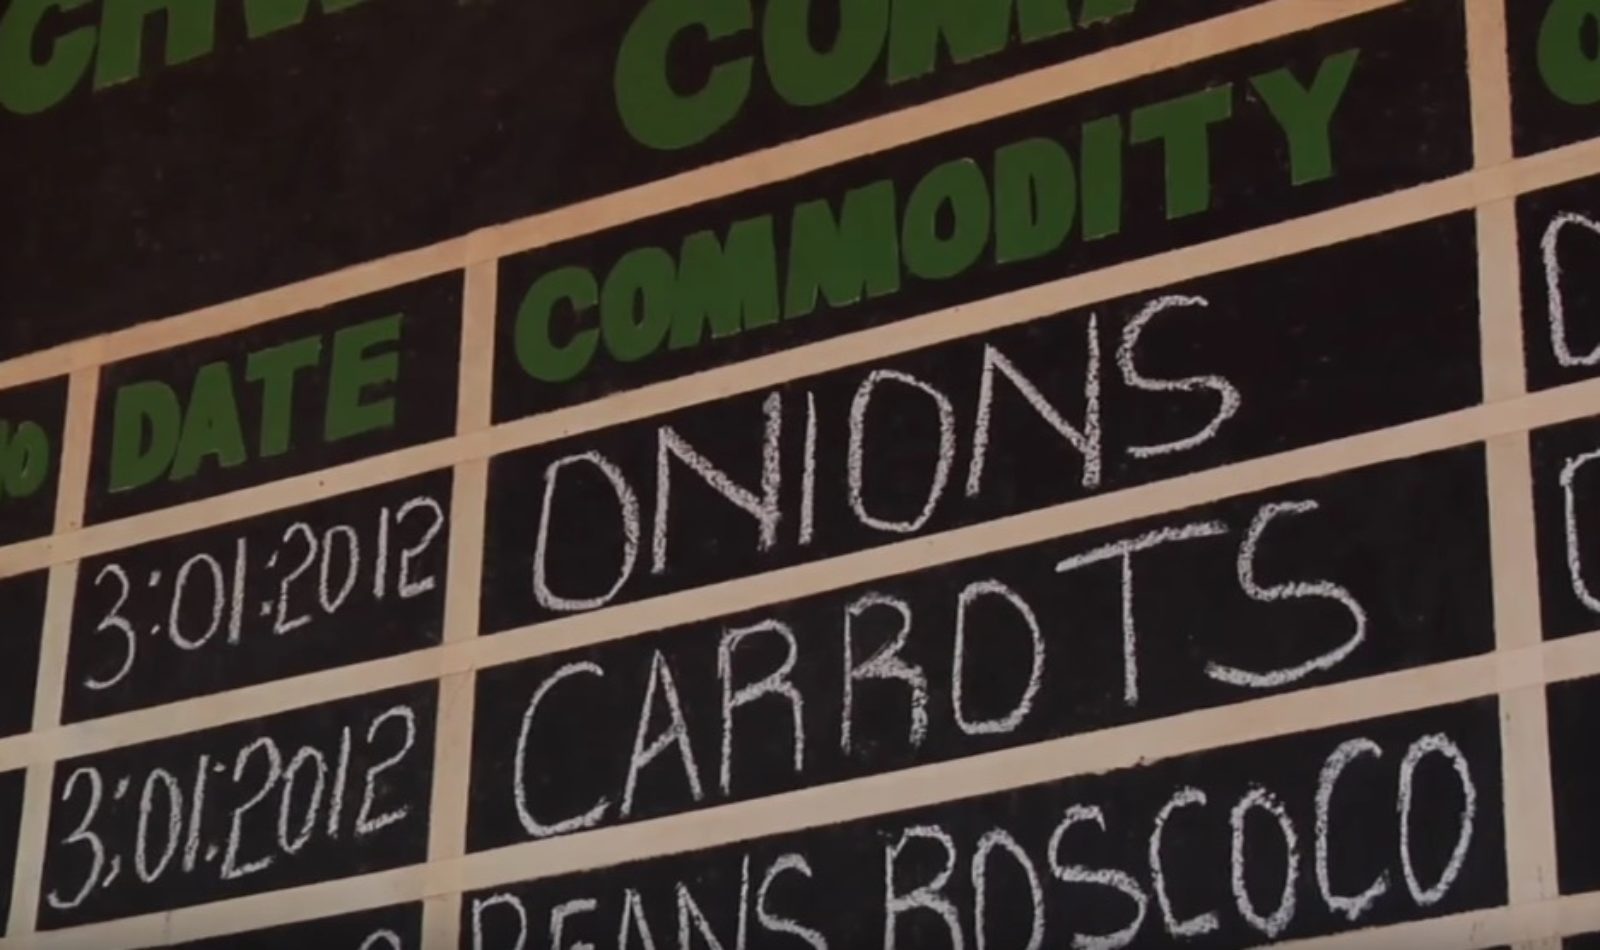 DATE COMMODITY
3:01:2012 ONIONS
3:01:2012 CARROTS
BEANS ROSCOCO